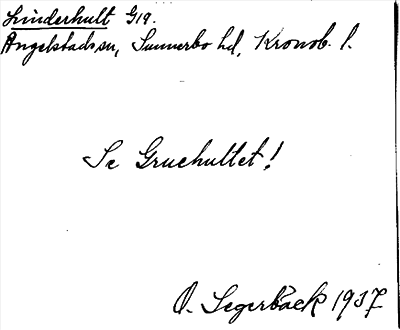 Linderhult Gtg.
Angelstads sn, Sunnerbo hd, Kronob. l.
Se Gruehultet!
O. Segerbäck 1937